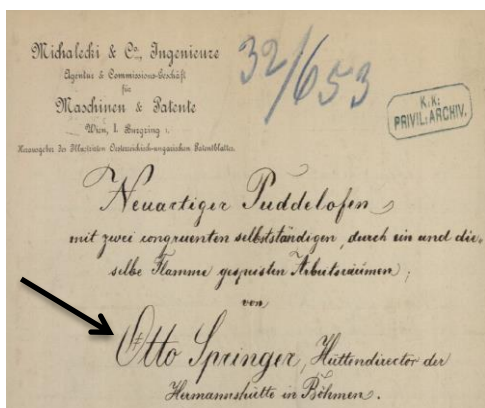 Michalecki & Co., Ingenieure
Agentur & Commissions-Geschäft
für
Maschinen & Patente
Wien, I. Burgring 1.
Herausgeber des Illustrirten Oesterreichisch-ungarischen Patentblattes.
32/653
K. K.
PRIVIL: ARCHIV.
Neuartiger Puddelofen
mit zwei congruenten selbstständigen, durch ein und die-
selbe Flamme gespeisten Arbeitsräumen;
von
Otto Springer, Hüttendirector der
Hermannshütte in Böhmen.